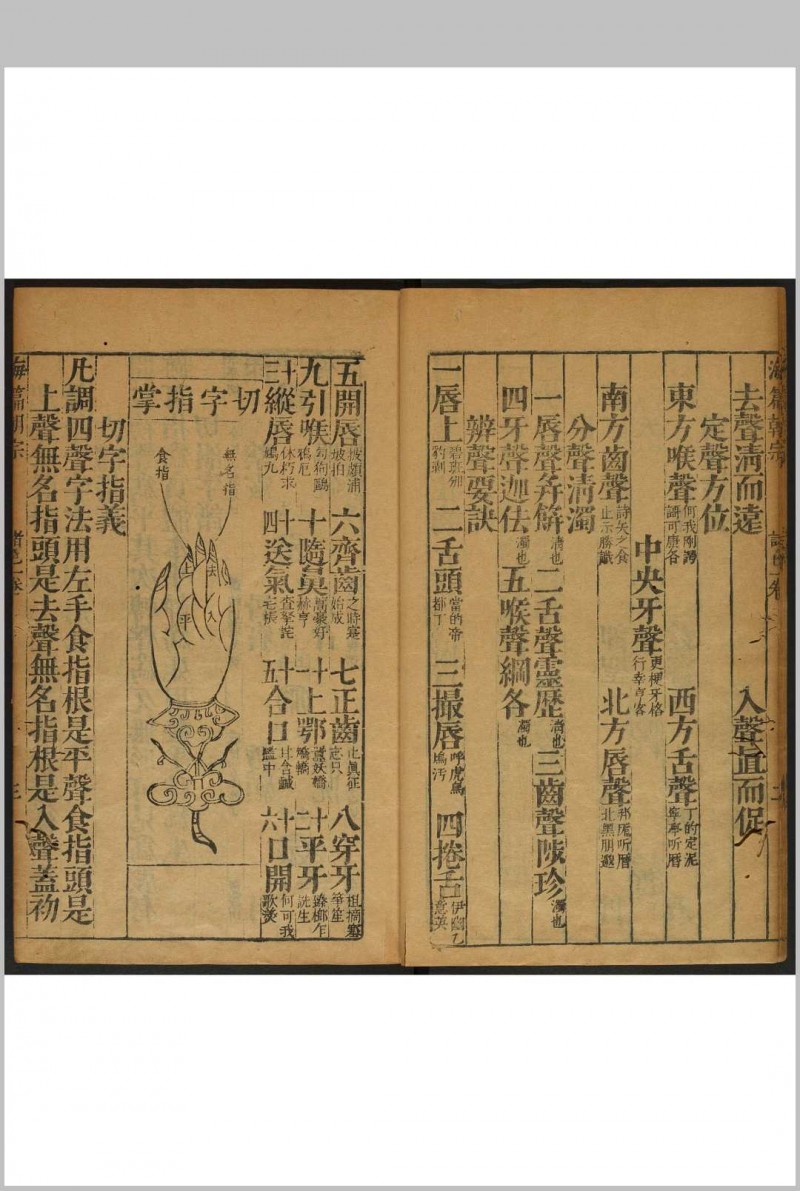 去聲淸而遠 入聲直而促
定聲方位
東方喉聲 何我剛 謌可康各 西方舌聲 丁的定泥 寧亭听曆
中央牙聲 更梗牙格 行幸亨客
南方齒聲 詩矢之食 止示勝識 北方唇聲 邦 听曆 北黑朋
分聲淸濁
一唇聲并餅 淸也 二舌聲靈歷 淸也 三齒聲陟珍 濁也
四牙聲迦佉 濁也 五喉聲綱各 濁也
辨聲要訣
一唇上 碧班 豹剥 二舌頭 當的帝 都丁 三撮唇 呼虎烏 塢汚 四捲舌 伊幽乙 意英
五開唇 披頗浦 坡拍 六齊齒 之時 始成 七正齒 止眞征 志只 八穿牙 摘 筝笙
九引喉 勾狗鷗 鴉厄 十隨鼻 好 赫亨 十一上鄂 妖橋 嬌轎 十二平牙 臻櫛乍 詵生
十三縱唇 休朽求 鳩九 十四送氣 查拏詫 宅棖 十五合口 甘含鹹 監中 十六口開 何可我 歌羹
切字指掌
無名指
食指
去
上
入
平
切字指義
凡調四聲字法用左手食指根是平聲食指頭是
上聲無名指頭是去聲無名指根是入聲蓋初